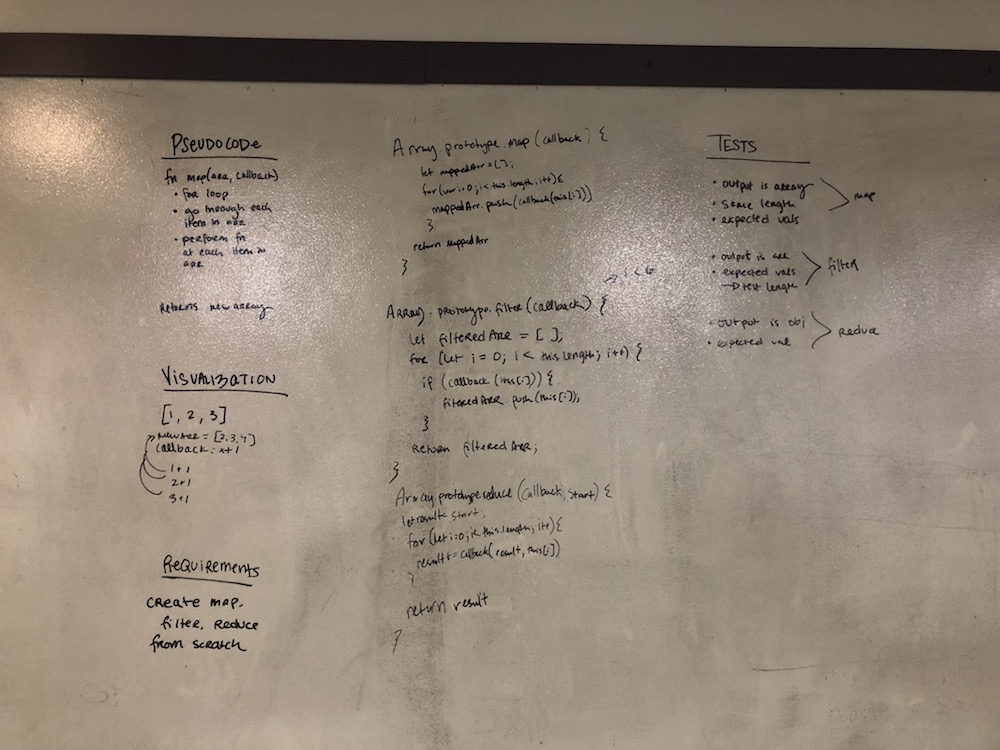 PSEUDOCODE
fn map(arr, callback)
• for loop
• go through each
item in arr
• perform fn
at each item in
arr
Returns new array
VISUALIZATION
[1, 2, 3]
newArr = [2,3,4]
callback: x+1
1+1
2+1
3+1
REQUIREMENTS
CREATE MAP,
filter, REDUCE
from SCRATCH
Array.prototype.map(callback) {
let mappedArr = [];
for(var i=0; i< this.length; i++){
mappedArr.push(callback(this[i]))
}
return mappedArr
}
→ i < 6
ARRAY.prototype.filter(callback) {
let filteredARR = [ ];
for (let i = 0; i < this.length; i++) {
if (callback(this[i])) {
filteredARR.push(this[i]);
}
Return filteredARR;
}
Array.prototype.reduce(callback, start) {
let result = start.
for (let i=0; i< this.length; i++){
result = callback(result, this[i])
}
return result
}
TESTS
• output is array
• same length
• expected vals
map
• output is arr
• expected vals
→ test length
filter
• output is obj
• expected val
REDUCE